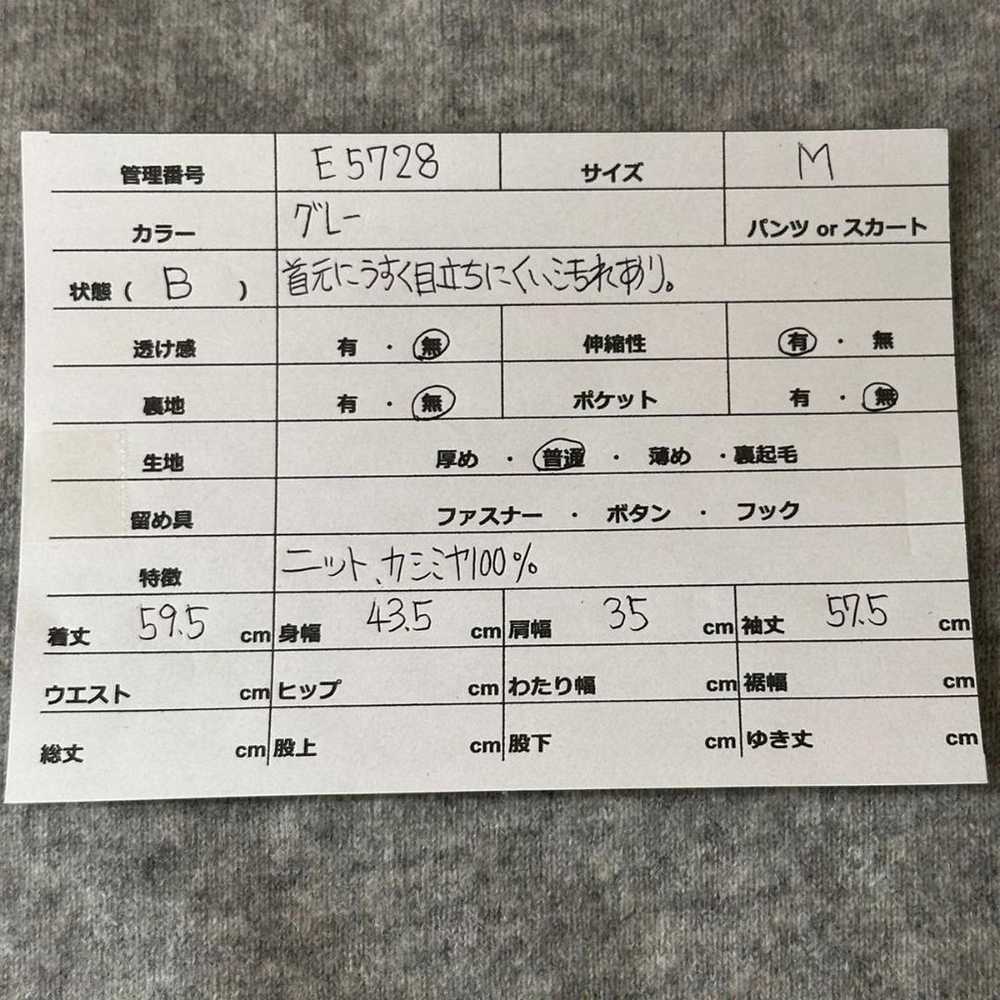 管理番号 E5728 サイズ M
カラー グレー パンツ or スカート
状態 ( B ) 首元にうすく目立ちにくい汚れあり。
透け感 有 ・ 無 伸縮性 有 ・ 無
裏地 有 ・ 無 ポケット 有 ・ 無
生地 厚め ・ 普通 ・ 薄め ・裏起毛
留め具 ファスナー ・ ボタン ・ フック
特徴 ニット、カシミヤ100%
着丈 59.5 cm 身幅 43.5 cm 肩幅 35 cm 袖丈 57.5 cm
ウエスト cm ヒップ cm わたり幅 cm 裾幅 cm
総丈 cm 股上 cm 股下 cm ゆき丈 cm